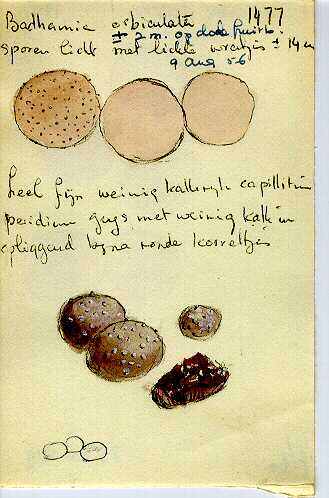 1477
Badhamia orbiculata
± 2 m. op dode
sporen licht met lichte wratjes ± 14 u
9 aug 56
heel fijn weinig kalkryk capillitium
peridium grys met weinig kalk in
opliggend byna ronde korreltjes